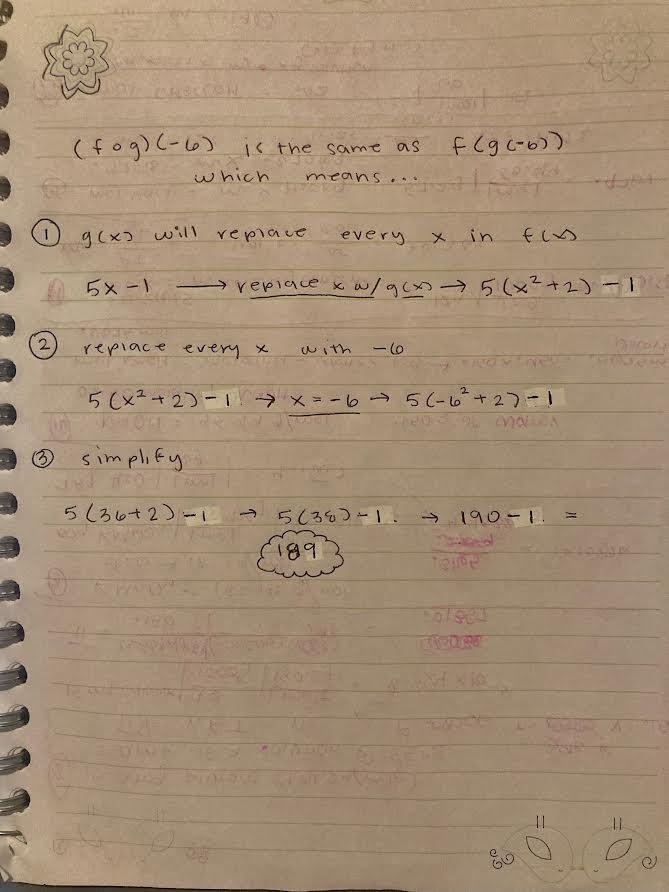 (f o g)(-6) is the same as f(g(-6))
which means...
① g(x) will replace every x in f(x)
5x - 1 → replace x w/ g(x) → 5(x² + 2) - 1
② replace every x with -6
5(x² + 2) - 1 → x = -6 → 5(-6² + 2) - 1
③ simplify
5(36 + 2) - 1 → 5(38) - 1 → 190 - 1 =
189